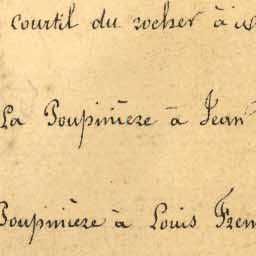 courtil du rocher à
La Poupinière à Jean
Poupinière à Louis Frem